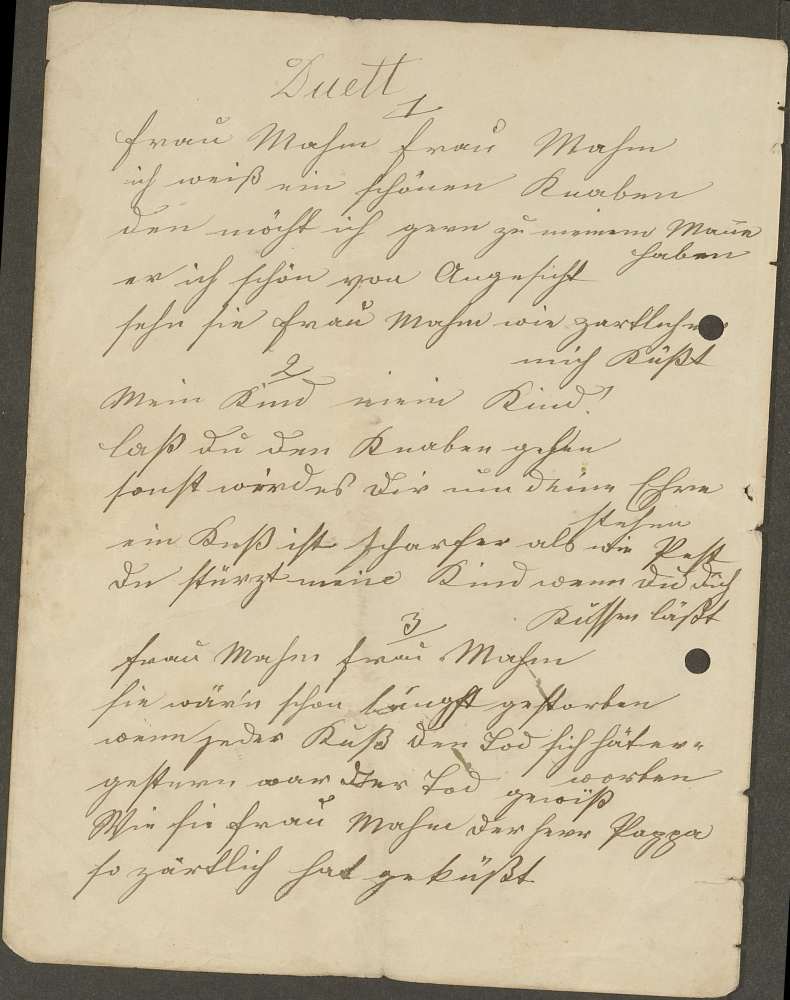 Duett
1
Frau Mahm Frau Mahm
ich weiß ein schönen Knaben
den möcht ich gern zu meinem Mane
haben
er ich schön von Angesicht
sehn sie Frau Mahm wie zartlich er
mich Küßt
2
Mein Kind mein Kind!
laß du den Knaben gehen
sonst wirdes dir um deine Ehre
stehen
ein Kuß ist scharfer als wie Pest
du stürzt meine Kind wenn du dich
Küssen läßt
3
Frau Mahm Frau Mahm
sie wär'n schon längst gestorben
wenn jeder Kuß den Tod sich hät er=
worben
gestern war der Tod gewiß
Wie sie Frau Mahm der herr Pappa
so zärtlich hat geküßt